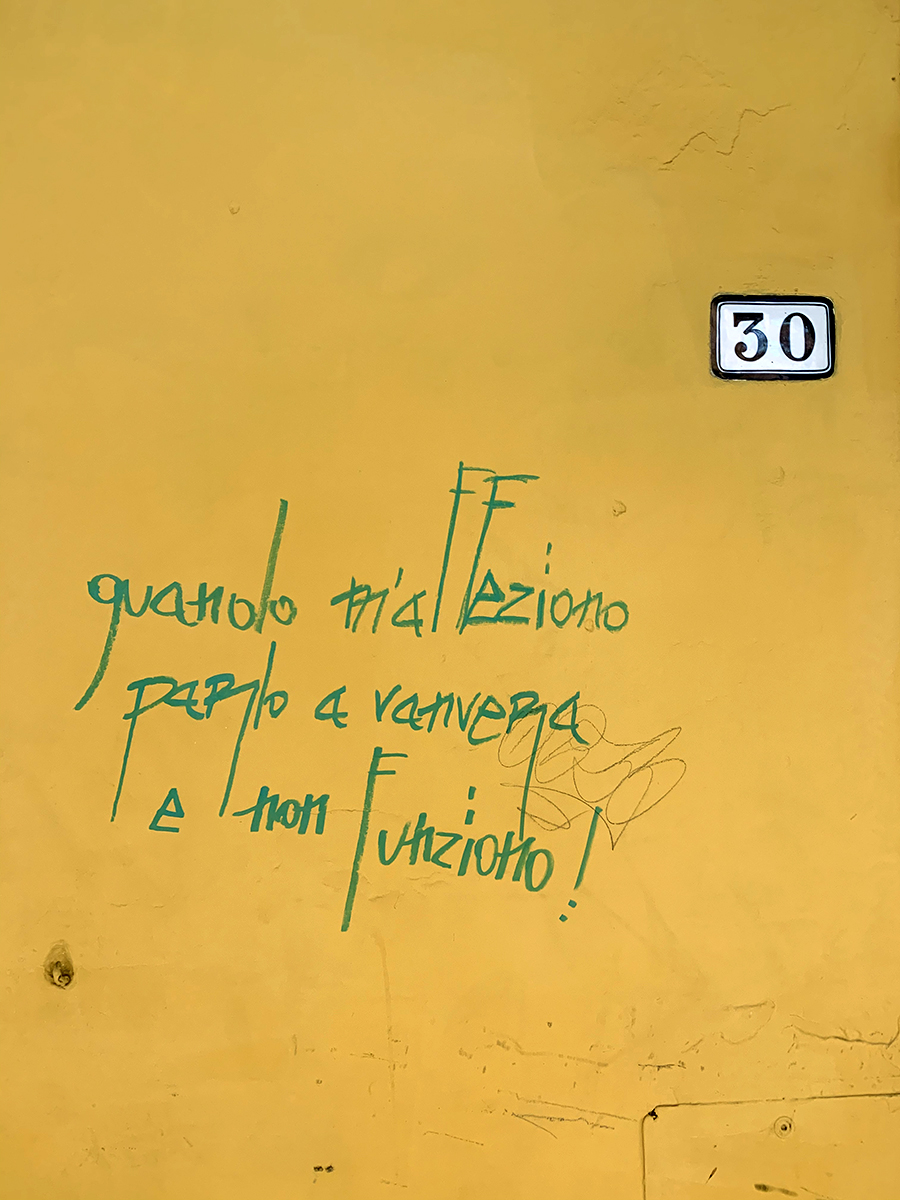 30
quando m'affeziono
parlo a vanvera
e non funziono!